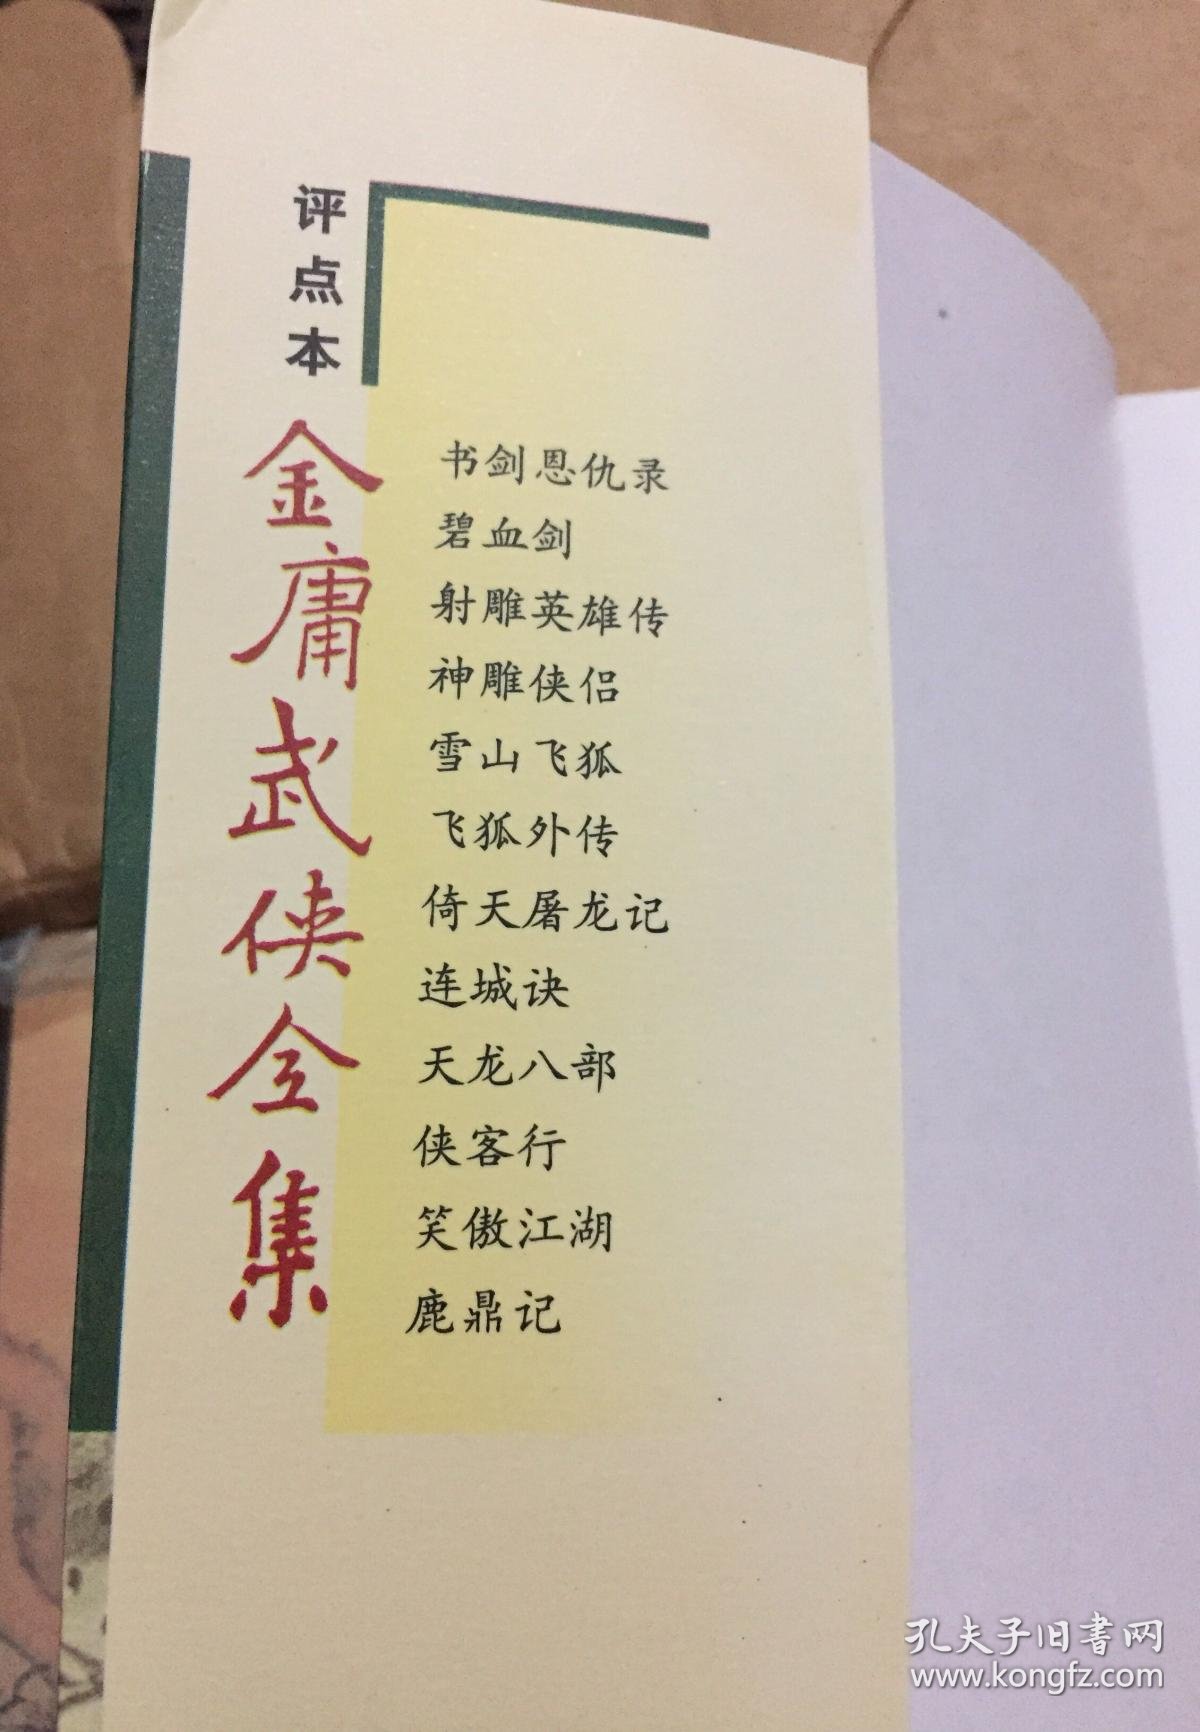 评点本
金庸武侠全集
书剑恩仇录
碧血剑
射雕英雄传
神雕侠侣
雪山飞狐
飞狐外传
倚天屠龙记
连城诀
天龙八部
侠客行
笑傲江湖
鹿鼎记
孔夫子旧书网
www.kongfz.com